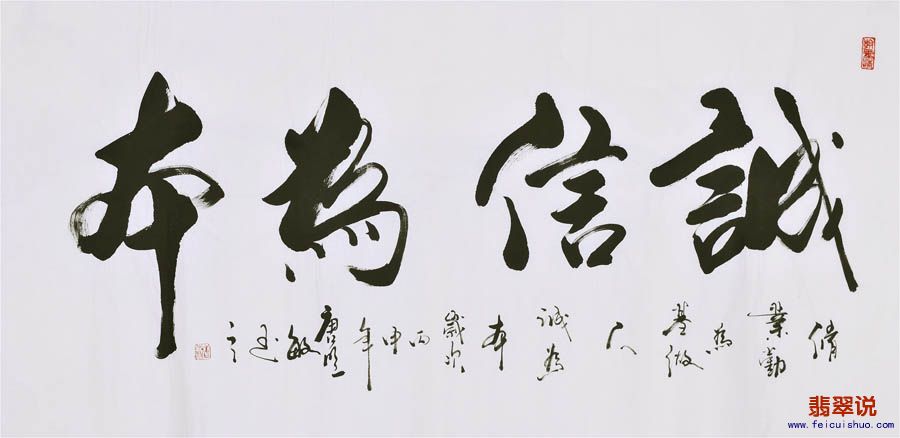 誠信為本
脩
業勤
為
基做
人
誠為
本
歲次
丙
申
年
唐
敏
之
翡翠说
www.feicuishuo.com